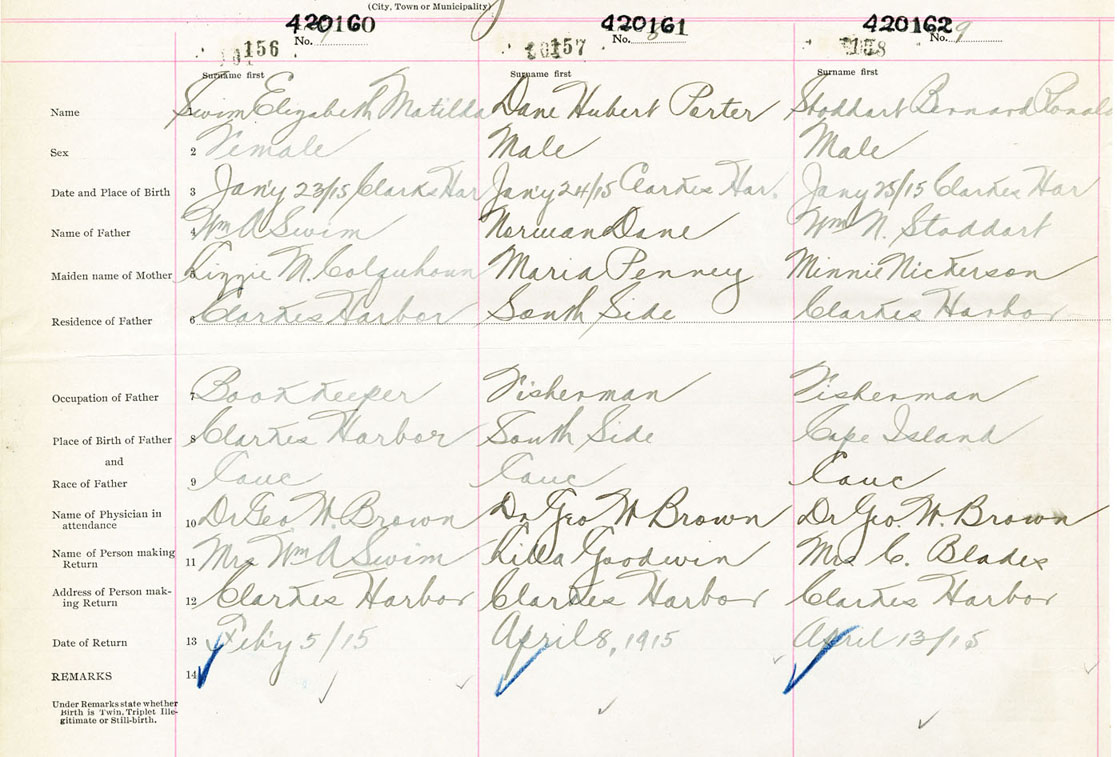 (City, Town or Municipality)
420160 420161 420162
No. No. No. 9
156 157 158
Surname first Surname first Surname first
Name 1 Swim Elizabeth Matilda Dane Hubert Porter Stoddart Bernard Ronald
Sex 2 Female Male Male
Date and Place of Birth 3 Jan'y 23/15 Clarks Har Jan'y 24/15 Clarkes Har. Jany 25/15 Clarkes Har
Name of Father 4 Wm A Swim Norman Dane Wm N. Stoddart
Maiden name of Mother 5 Lizzie M. Colquhoun Maria Penney Minnie Nickerson
Residence of Father 6 Clarkes Harbor South Side Clarkes Harbor
Occupation of Father 7 Bookkeeper Fisherman Fisherman
Place of Birth of Father 8 Clarkes Harbor South Side Cape Island
and
Race of Father 9 Cauc Cauc Cauc
Name of Physician in attendance 10 Dr Geo W. Brown Dr Geo W Brown Dr Geo. W. Brown
Name of Person making Return 11 Mrs Wm A Swim Lilla Goodwin Mrs C. Blades
Address of Person mak-
ing Return 12 Clarkes Harbor Clarkes Harbor Clarkes Harbor
Date of Return 13 Feb'y 5/15 April 8, 1915 April 13/15
REMARKS 14
Under Remarks state whether
Birth is Twin, Triplet Ille-
gitimate or Still-birth.